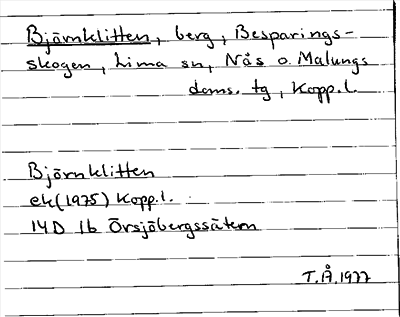 Björnklitten, berg, Besparings-
skogen, Lima sn, Nås o. Malungs
doms. tg, Kopp.l.
Björnklitten
ek(1975) Kopp.l.
14D 1b Örsjöbergssätern
T.Å.1977